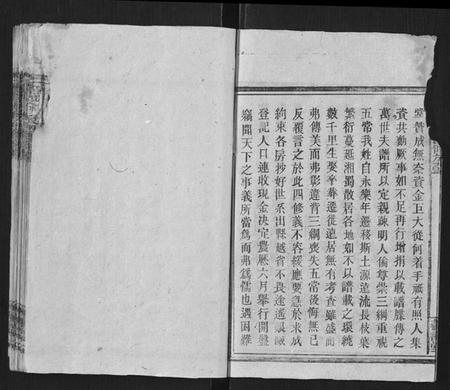 皆贊成無奈資金巨大從何着手祇有照人集
資共動厥事如不足再行增捐以載譜牒傳之
萬世夫譜所以定親疎明人倫尊崇三綱重視
五常我姓自永樂年遷移斯土源遠流長枝葉
繁衍蔓延湘蜀散居各地如不以譜載之環繞
數千里生娶卒葬遷徙遠居無有考查雖盛而
弗傳美而弗彰違背三綱喪失五常後悔無已
反覆言之於此四修義不容緩應要急於求成
約束各房抄好世系出縣越省不畏途遙
登記人口連收現金決定農曆六月舉行開盤
竊聞天下之事義所當爲而弗爲懦也遇困難